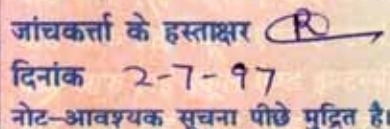 जांचकर्त्ता के हस्ताक्षर R
दिनांक 2-7-97
नोट-आवश्यक सूचना पीछे मुद्रित है।